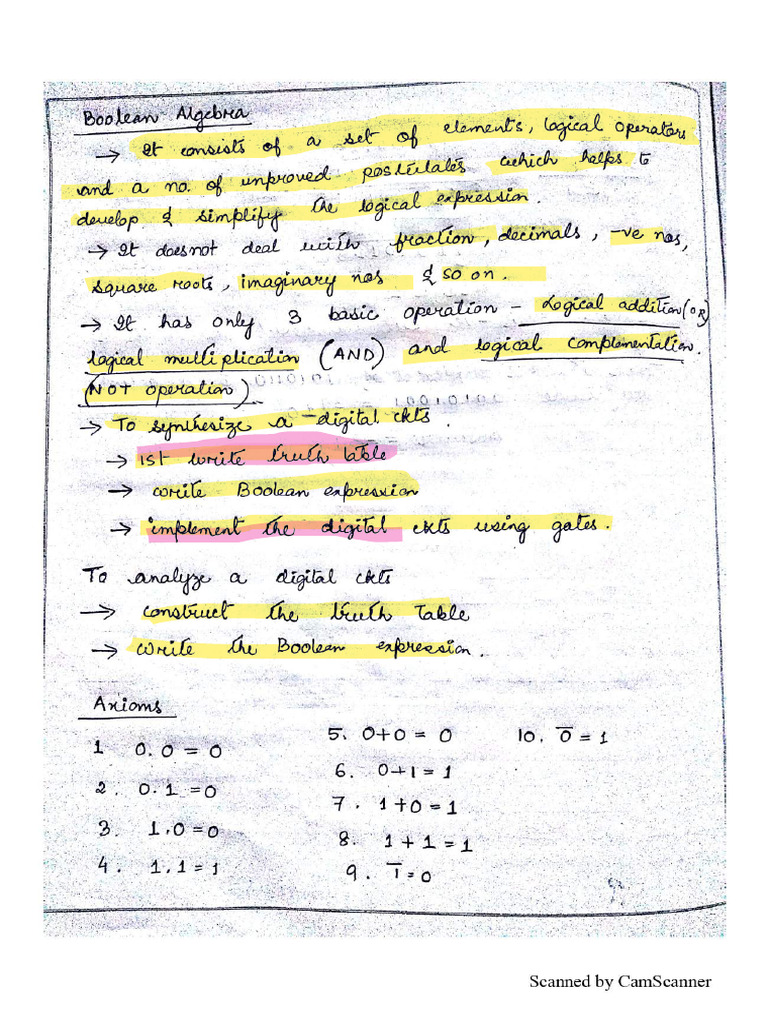 Boolean Algebra
→ It consists of a set of elements, logical operators
and a no. of unproved postulates which helps to
develop & simplify the logical expression.
→ It doesnot deal with fraction, decimals, -ve nos,
square roots, imaginary nos & so on.
→ It has only 3 basic operation - Logical addition (OR)
logical multiplication (AND) and logical complementation.
(NOT operation)
→ To synthesize a digital ckts.
→ 1st write truth table
→ write Boolean expression
→ implement the digital ckts using gates.
To analyze a digital ckts
→ construct the truth table
→ write the Boolean expression.
Axioms
1 0.0 = 0
2. 0.1 = 0
3. 1.0 = 0
4. 1.1 = 1
5. 0+0 = 0
6. 0+1 = 1
7. 1+0 = 1
8. 1+1 = 1
9. 1̅ = 0
10. 0̅ = 1
Scanned by CamScanner